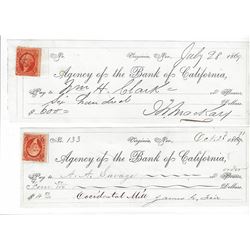 No. Virginia, Nev. July 28 1869
Agency of the Bank of California,
Pay to Wm H. Clark
Six hundred Dollars
$600 J W Mackay
No. 133 Virginia, Nev. Oct. 186
Agency of the Bank of California,
Pay to A. A. Savage or order
Dollars
$ Occidental Mill James G. Fair